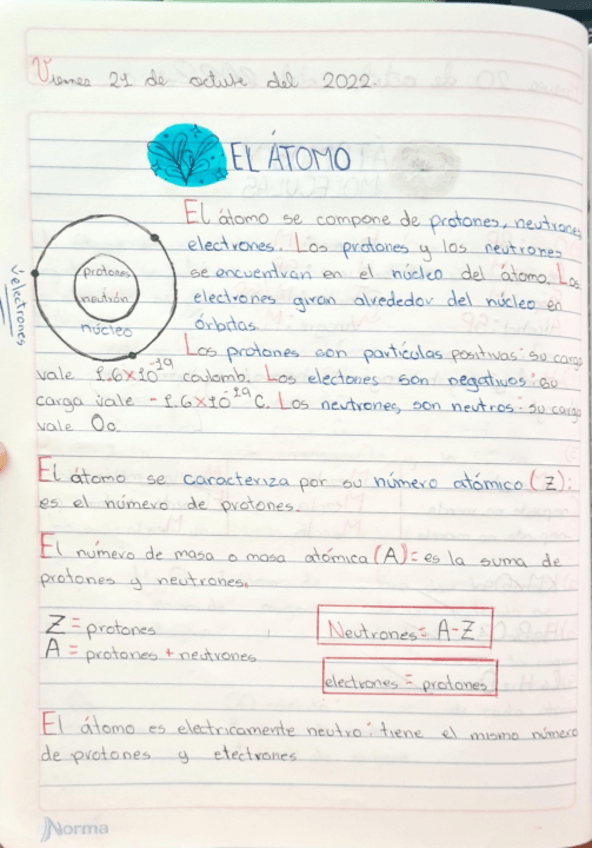 Viernes 21 de octubre del 2022.
EL ÁTOMO
El átomo se compone de protones, neutrones
electrones. Los protones y los neutrones
se encuentran en el núcleo del átomo. Los
electrones giran alrededor del núcleo en
órbitas
protones
neutrón
núcleo
electrones
Los protones son partículas positivas: su carga
vale 1.6x10^-19 coulomb. Los electones son negativos: su
carga vale -1.6x10^-19 C. Los neutrones, son neutros: su carga
vale 0c
El átomo se caracteriza por su número atómico (Z):
es el número de protones.
El número de masa o masa atómica (A)= es la suma de
protones y neutrones.
Z = protones
A = protones + neutrones
Neutrones = A-Z
electrones = protones
El átomo es electricamente neutro: tiene el mismo número
de protones y electrones
Norma